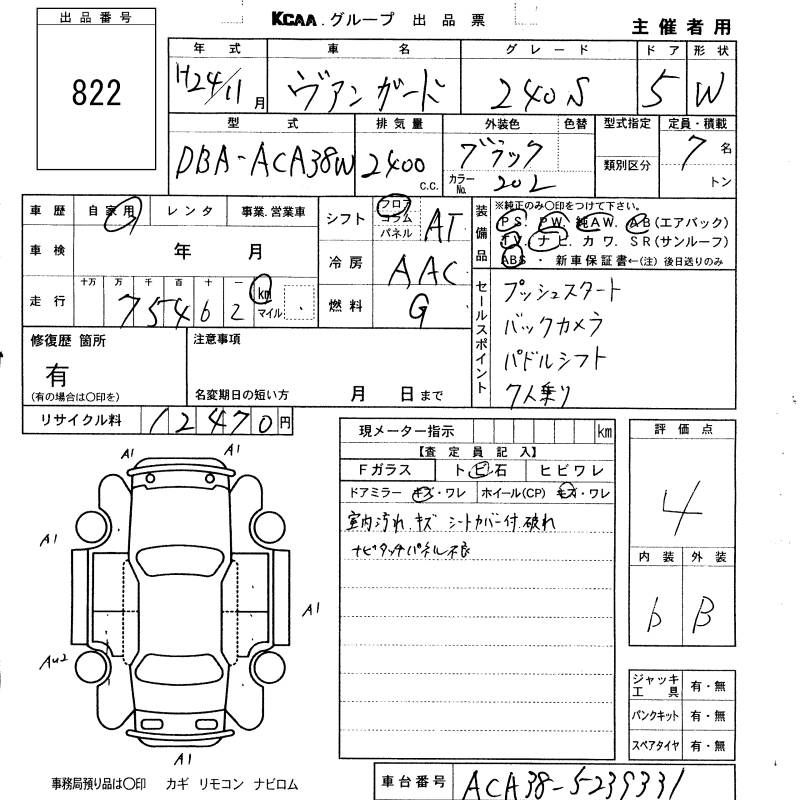 出品番号
822
KCAA.グループ 出品票
主催者用
年式 車名 グレード ドア 形状
H24/11月 ヴァンガード 240S 5 W
型式 排気量 外装色 色替 型式指定 定員・積載
DBA-ACA38W 2400 c.c. ブラック 類別区分 7名
カラーNo. 202 トン
車歴 自家用 レンタ 事業.営業車
車検 年 月
走行 十万 万 千 百 十 一 km マイル
75462
シフト フロア コラム パネル AT
冷房 AAC
燃料 G
装備品 ※純正のみ○印をつけて下さい。
PS. PW. 純AW. AB(エアバック)
TV. ナビ. カワ. SR(サンルーフ)
ABS ・ 新車保証書←(注) 後日送りのみ
セールスポイント
プッシュスタート
バックカメラ
パドルシフト
7人乗り
修復歴 箇所
有
(有の場合は○印を)
注意事項
名変期日の短い方 月 日まで
リサイクル料 12470円
現メーター指示 km
【査定員記入】
Fガラス トビ石 ヒビワレ
ドアミラー キズ・ワレ ホイール(CP) キズ・ワレ
室内汚れ.キズ シートカバー付.破れ
ナビタッチパネル不良
評価点
4
内装 外装
b B
A1 A1
A1
A1
AU2
A1
ジャッキ工具 有・無
パンクキット 有・無
スペアタイヤ 有・無
事務局預り品は○印 カギ リモコン ナビロム
車台番号 ACA38-5239331